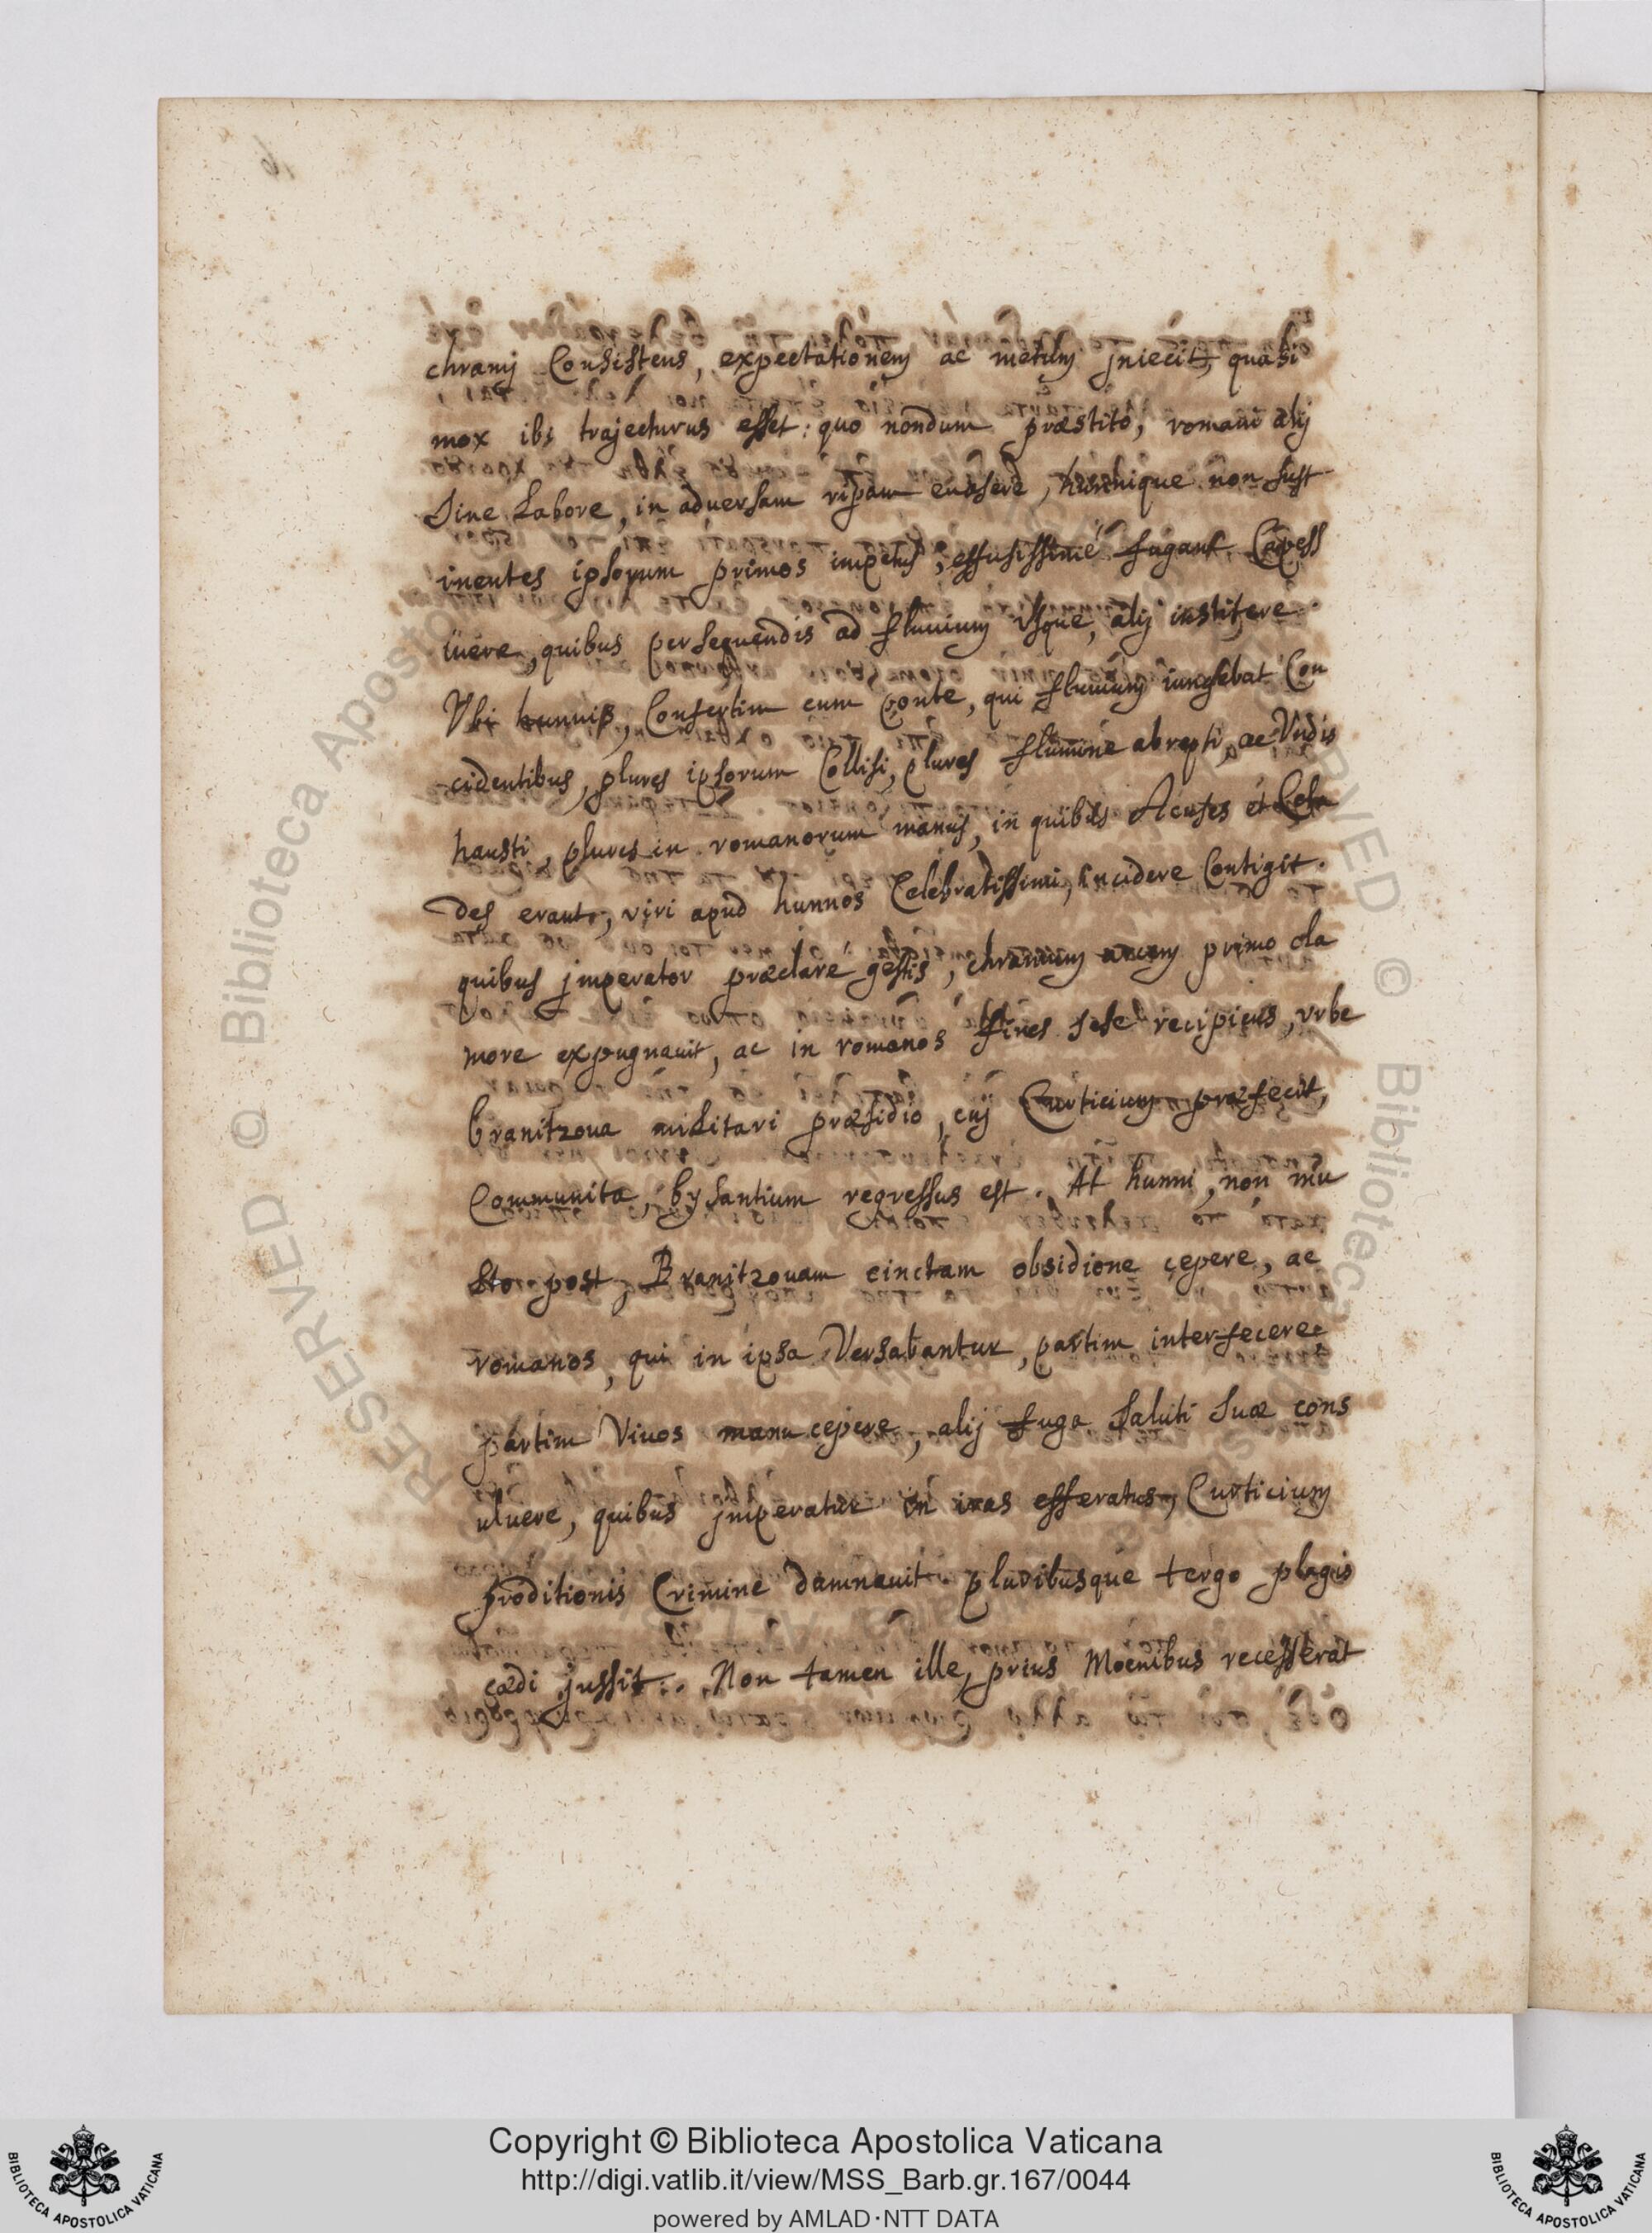 chramj Consistens, expectationem ac metum jniecit, quasi
mox ibj trajecturus esset: quo nondum præstito, romani alij
Sine Labore, in adversam ripam euasere, hunnique non sust
inentes ipsorum primos impetus, effusissime fugam Capess
iuere, quibus persequendis ad fluuium Usque, alij institere
Vbi hunnis, Confertim cum ponte, qui fluuium iungebat Con
cidentibus, plures ipsorum Collisi, plures flumine abrepti, ac Vndis
hausti, plures in romanorum manus, in quibus Acuses et Cela
des erant, viri apud hunnos Celebratissimi, incidere Contigit.
quibus jmperator præclare gestis, chramum arcem primo cla
more expugnauit, ac in romanos fines sese recipiens, vrbe
branitzoua militari præsidio, cuj Curticium præfecit,
Communita, bysantium regressus est. At hunni, non mu
lto post Branitzouam cinctam obsidione cepere, ac
romanos, qui in ipsa Versabantur, partim interfecere
partim Viuos manu cepere, alij fuga saluti suæ cons
uluere, quibus jmperator in iras efferatus, Curticium
proditionis Crimine damnauit pluribusque tergo plagis
cædi jussit. Non tamen ille, prius Moenibus recesserat
RESERVED © Biblioteca Apostolica
Copyright © Biblioteca Apostolica Vaticana
http://digi.vatlib.it/view/MSS_Barb.gr.167/0044
powered by AMLAD·NTT DATA
BIBLIOTECA APOSTOLICA VATICANA
BIBLIOTECA APOSTOLICA VATICANA